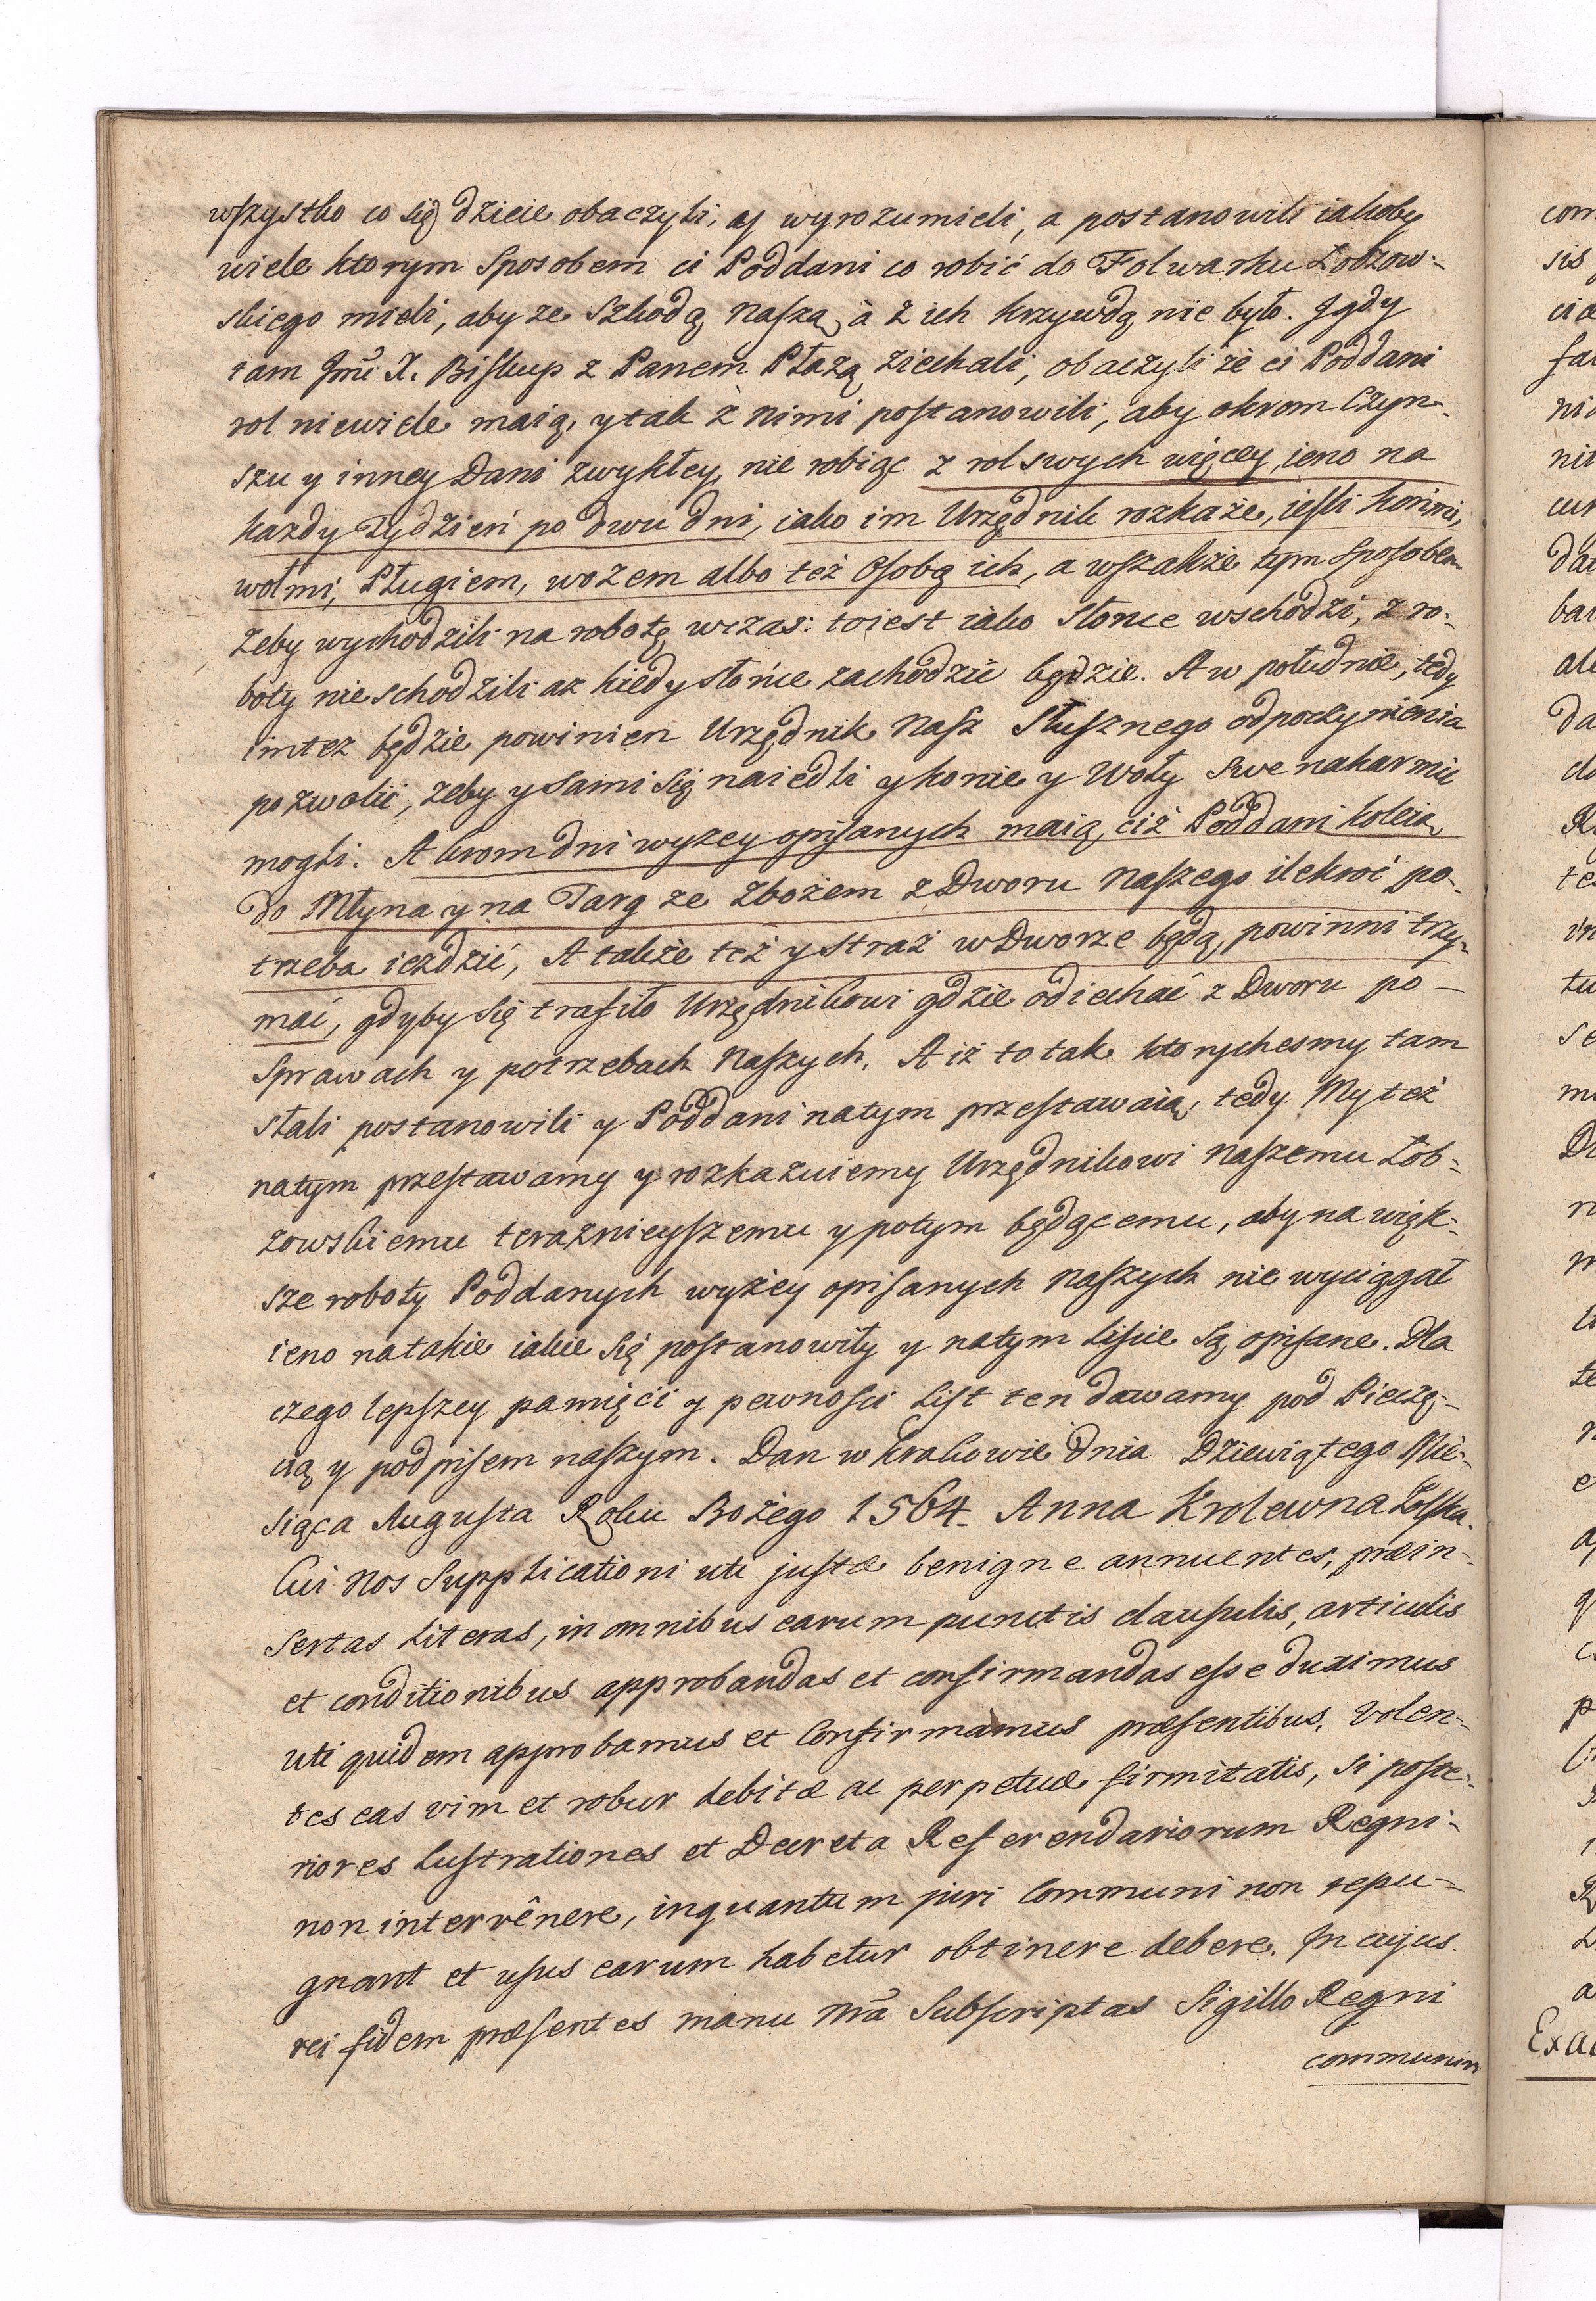 wszystko co się dzieie obaczyli, y wyrozumieli, a postanowili iakoby
wiele ktorym Sposobem ci Poddani co robić do Folwarku Łobzow-
skiego mieli, aby ze Szkodą Naszą, à z ich krzywdą nie było. Jgdy
tam Jmć X. Biskup z Panem Płazą ziechali, obaczyli że ci Poddani
rol niewiele maią, ytak z nimi postanowili, aby okrom Czyn-
szu y inney Dani zwykłey, nie robiąc z rol swych więcey, ieno na
każdy Tydzień po dwu dni, iako im Urzędnik rozkaże, iesli końmi,
wołmi, Pługiem, wozem albo też Osobą ich, a wszakże tym Sposobem
żeby wychodzili na robotę wczas: toiest iako Słonce wschodzi, z ro-
boty nieschodzili aż kiedy słońce zachodzić będzie. A w południe, tedy
imtez będzie powinien Urzędnik Nasz Słusznego odpoczynienia
pozwolić, żeby y Sami Się naiedli y konie y Woły Swe nakarmić
mogli. A krom dni wyzey opisanych maią ciż Poddani koleią
do Młyna y na Targ ze Zbożem z Dworu Naszego ilekroć po-
trzeba ieździć, A także też y straż w Dworze będą powinni trzy-
mać, gdyby Się trafiło Urzędnikowi gdzie odiechać z Dworu po-
Sprawach y potrzebach Naszych. A iż to tak ktorychesmy tam
słali postanowili y Poddani natym przestawaią, tedy My też
natym przestawamy y rozkazuiemy Urzędnikowi Naszemu Łob-
zowskiemu terazniejszemu y potym będącemu, aby na więk-
sze roboty Poddanych wyżey opisanych Naszych nie wyciągał
ieno natakie iakie Się postanowiły y natym Liscie Są opisane. Dla
czego lepszey pamięci y pewnosci List ten dawamy pod Pieczę-
cią y podpisem naszym. Dan w Krakowie Dnia Dziewiątego Mie-
siąca Augusta Roku Bożego 1564. Anna Krolewna Polska.
Cui Nos Supplicationi uti justæ benigne annuentes, præin-
sertas Literas, in omnibus earum punctis clausulis, articulis
et conditionibus approbandas et confirmandas esse duximus
uti quidem approbamus et Confirmamus præsentibus. Volen-
tes eas vim et robur debitæ ac perpetuæ firmitatis, si poste-
riores Lustrationes et Decreta Referendariorum Regni-
non intervênere, inquantum juri Communi non repu-
gnant et usus earum habetur obtinere debere. In cujus
rei fidem præsentes manu Nrã Subscriptas Sigillo Regni
communiri
com
sis
nit
cur
bar
da
do
te
tu
Exac